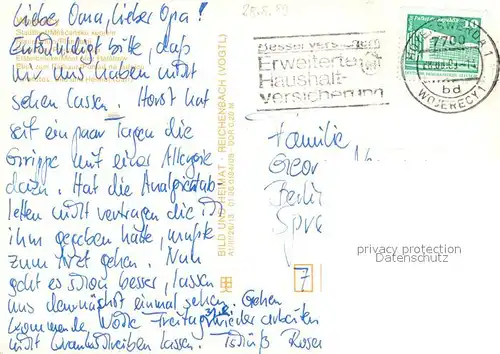 Liebe Oma, lieber Opa!
Entschuldigt bitte, daß
wir uns haben nicht
sehen lassen. Horst hat
seit ein paar Tagen die
Grippe mit einer Allergie
dazu. Hat die Analgintab
letten nicht vertragen die ich
ihm gegeben hatte, mußte
zum Arzt gehen. Nun
geht es schon besser, lassen
uns demnächst einmal sehen. Gehen
kommende Woche Freitag wieder arbeiten
nicht krankschreiben lassen. Tschüß Rosen
BILD UND HEIMAT · REICHENBACH (VOGTL)
DDR 0,20 M
Besser versichern
Erweiterte
Haushalt-
versicherung
7700
bd
WOJERECY 1
10
Familie
Geor
Berlin
Spre
7
privacy protection
Datenschutz